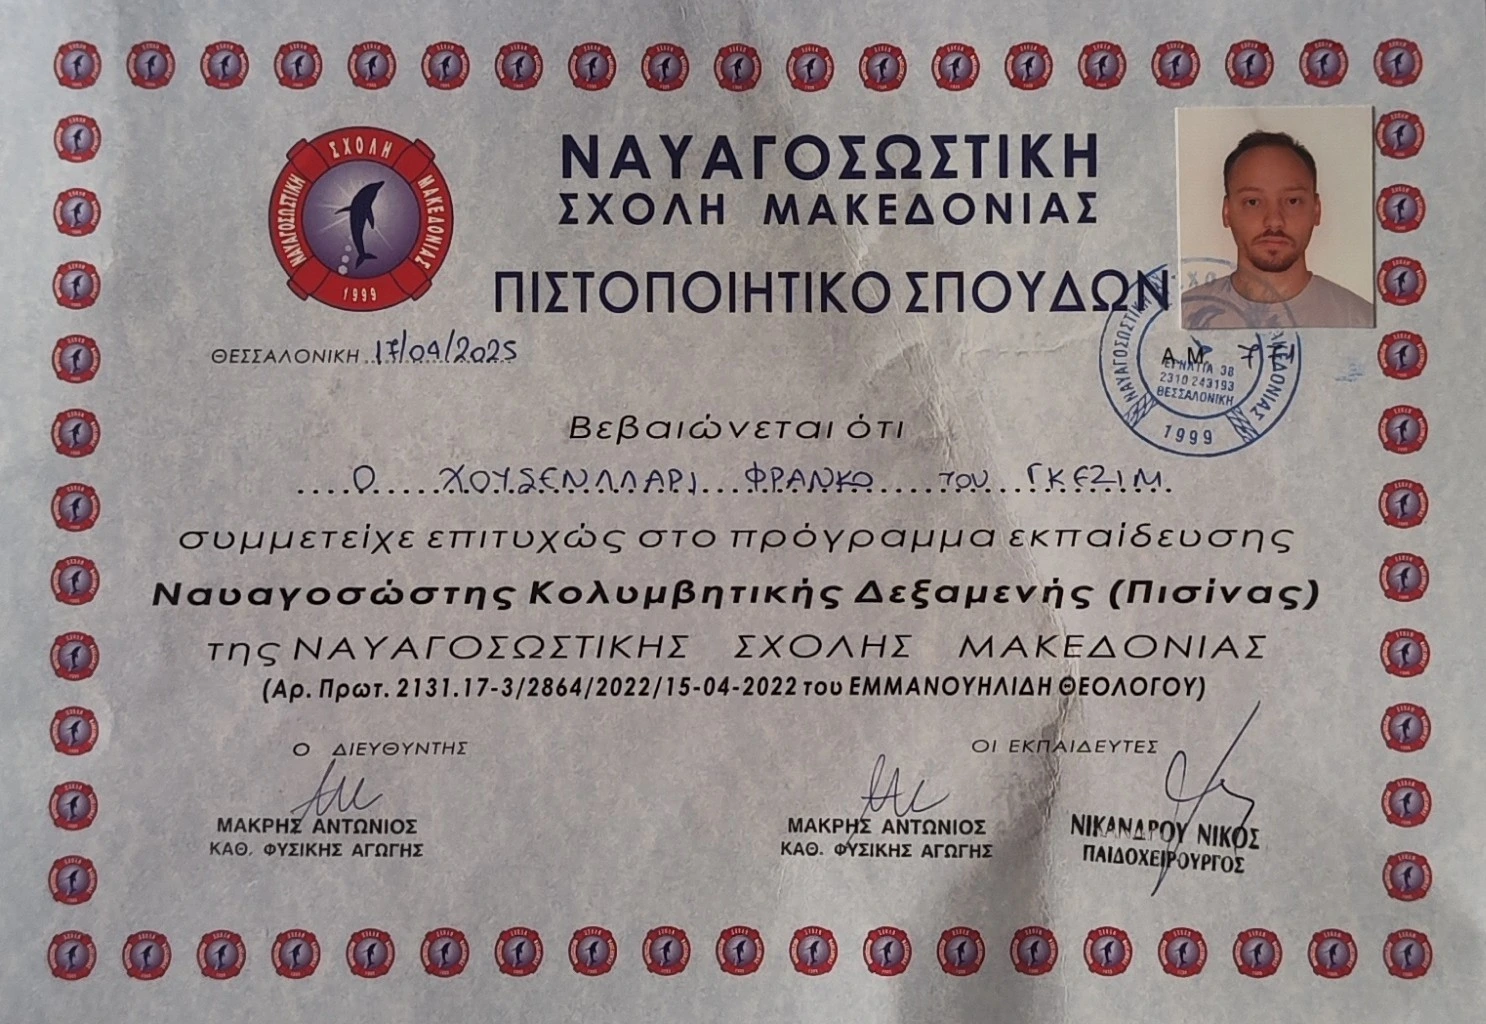 ΝΑΥΑΓΟΣΩΣΤΙΚΗ
ΣΧΟΛΗ ΜΑΚΕΔΟΝΙΑΣ
ΠΙΣΤΟΠΟΙΗΤΙΚΟ ΣΠΟΥΔΩΝ
ΣΧΟΛΗ
ΝΑΥΑΓΟΣΩΣΤΙΚΗ
ΜΑΚΕΔΟΝΙΑΣ
1999
ΘΕΣΣΑΛΟΝΙΚΗ 17/04/2025
Α.Μ.
ΝΑΥΑΓΟΣΩΣΤΙΚΗ
ΜΑΚΕΔΟΝΙΑΣ
ΕΓΝΑΤΙΑ 38
2310 243193
ΘΕΣΣΑΛΟΝΙΚΗ
1999
Βεβαιώνεται ότι
Ο ΧΟΥΣΕΝΛΛΑΡΙ ΦΡΑΝΚΟ του ΓΚΕΖΙΜ
συμμετείχε επιτυχώς στο πρόγραμμα εκπαίδευσης
Ναυαγοσώστης Κολυμβητικής Δεξαμενής (Πισίνας)
της ΝΑΥΑΓΟΣΩΣΤΙΚΗΣ ΣΧΟΛΗΣ ΜΑΚΕΔΟΝΙΑΣ
(Αρ. Πρωτ. 2131.17-3/2864/2022/15-04-2022 του ΕΜΜΑΝΟΥΗΛΙΔΗ ΘΕΟΛΟΓΟΥ)
Ο ΔΙΕΥΘΥΝΤΗΣ
ΜΑΚΡΗΣ ΑΝΤΩΝΙΟΣ
ΚΑΘ. ΦΥΣΙΚΗΣ ΑΓΩΓΗΣ
ΟΙ ΕΚΠΑΙΔΕΥΤΕΣ
ΜΑΚΡΗΣ ΑΝΤΩΝΙΟΣ
ΚΑΘ. ΦΥΣΙΚΗΣ ΑΓΩΓΗΣ
ΝΙΚΑΝΔΡΟΥ ΝΙΚΟΣ
ΠΑΙΔΟΧΕΙΡΟΥΡΓΟΣ